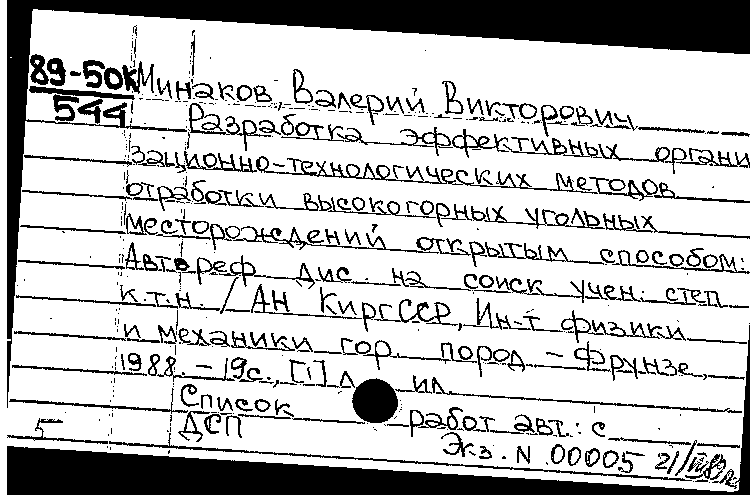 89-50К Минаков, Валерий Викторович
544
Разработка эффективных органи
зационно-технологических методов
отработки высокогорных угольных
месторождений открытым способом:
Автореф дис. на соиск учен. степ
к.т.н. / АН КиргССР, Ин-т физики
и механики гор. пород - Фрунзе,
1988. - 19с., [1] л ил.
Список работ авт.: с
5 ДСП
Экз. N 00005 21/